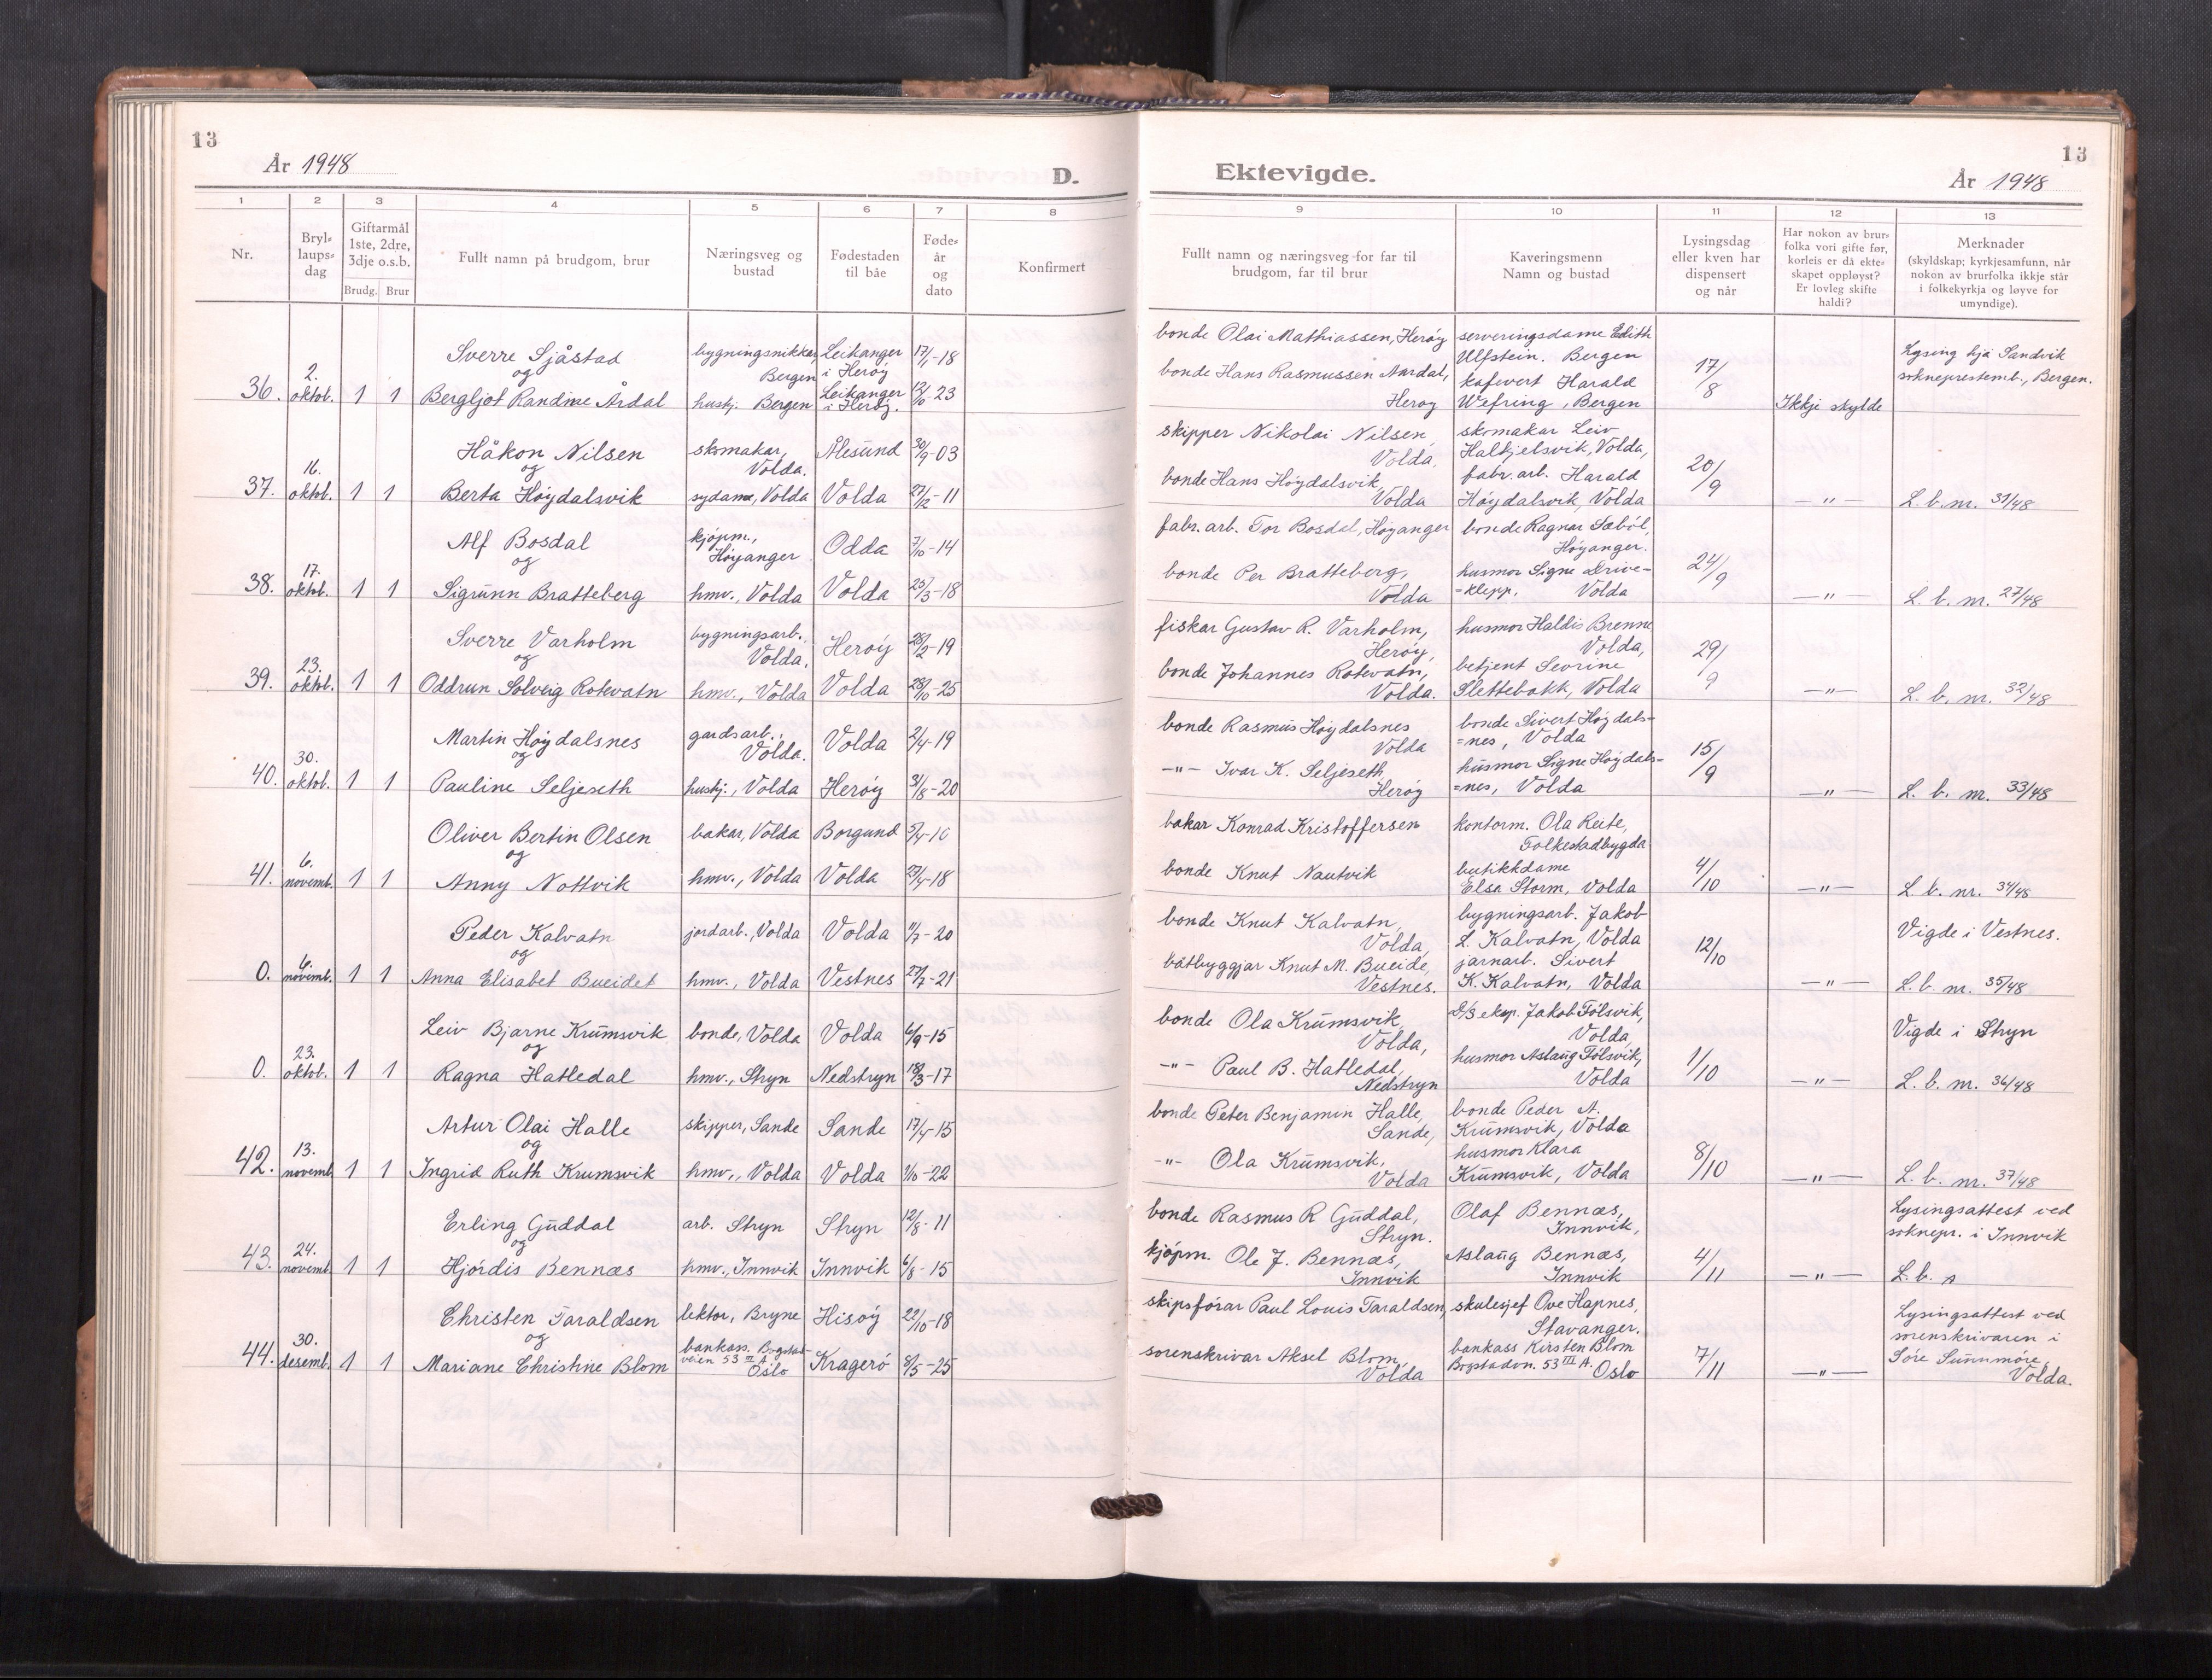 13
År 1948
D.
Ektevigde.
13
År 1948
1 2 3 4 5 6 7 8 9 10 11 12 13
Nr.
Bryl-
laups-
dag
Giftarmål
1ste, 2dre,
3dje o.s.b.
Brudg. Brur
Fullt namn på brudgom, brur
Næringsveg og
bustad
Fødestaden
til båe
Føde-
år
og
dato
Konfirmert
Fullt namn og næringsveg for far til
brudgom, far til brur
Kaveringsmenn
Namn og bustad
Lysingsdag
eller kven har
dispensert
og når
Har nokon av brur-
folka vori gifte før,
korleis er då ekte-
skapet oppløyst?
Er lovleg skifte
haldi?
Merknader
(skyldskap; kyrkjesamfunn, når
nokon av brurfolka ikkje står
i folkekyrkja og løyve for
umyndige).
36. 2. oktob. 1 1
Sverre Sjåstad bygningsnikkar, Bergen Leikanger i Herøy 17/1-18
og
Bergljot Randine Årdal hushj. Bergen Leikanger i Herøy. 12/10-23
bonde Olai Mathiassen, Herøy
bonde Hans Rasmussen Aardal,
Herøy
serveringsdame Edith
Ulfstein. Bergen
kafevert Harald
Wefring, Bergen
17/8
Ikkje skylde
Lysing hjå Sandvik
sokneprestemb., Bergen.
37. 16. oktob. 1 1
Håkon Nilsen skomakar, Volda. Ålesund 30/9-03
og
Berta Høydalsvik sydame, Volda Volda 27/12-11
skipper Nikolai Nilsen,
Volda.
bonde Hans Høydalsvik,
Volda
skomakar Leiv
Halkjelsvik, Volda,
fabr. arb. Harald
Høydalsvik, Volda
20/9
—"—
L. b. nr. 31/48
38. 17. oktob. 1 1
Alf Bosdal kjøpm., Høyanger Odda 7/10-14
og
Sigrunn Bratteberg hmv., Volda Volda 25/3-18
fabr. arb. Tor Bosdal, Høyanger
bonde Per Bratteberg,
Volda
bonde Ragnar Sæbø,
Høyanger.
husmor Signe Drive-
-klepp, Volda
24/9
—"—
L. b. nr. 27/48
39. 23. oktob. 1 1
Sverre Varholm bygningsarb. Volda. Herøy 28/2-19
og
Oddrun Solveig Rotevatn hmv., Volda Volda 28/10-25
fiskar Gustav R. Varholm,
Herøy,
bonde Johannes Rotevatn,
Volda.
husmor Haldis Brenne
Volda,
betjent Sevrine
Slettebakk, Volda
29/9
—"—
L. b. nr. 32/48
40. 30. oktob. 1 1
Martin Høydalsnes gardsarb., Volda. Volda 2/4-19
og
Pauline Seljeseth hushj., Volda Herøy 31/8-20
bonde Rasmus Høydalsnes
Volda
-"- Ivar K. Seljeseth
Herøy
bonde Sivert Høydals-
=nes, Volda
husmor Signe Høydals-
=nes, Volda
15/9
—"—
L. b. nr. 33/48
41. 6. novemb. 1 1
Oliver Bertin Olsen bakar, Volda Borgund 5/4-16
og
Anny Nottvik hmv., Volda Volda 23/4-18
bakar Konrad Kristoffersen
bonde Knut Nautvik
kontorm. Ola Reite,
Folkestadbygda
butikkdame
Elsa Storm, Volda
4/10
—"—
L. b. nr. 34/48
0. 6. novemb. 1 1
Peder Kalvatn jordarb., Volda Volda 11/7-20
og
Anna Elisabet Bueidet hmv., Volda Vestnes 27/7-21
bonde Knut Kalvatn,
Volda,
båtbyggjar Knut M. Bueide,
Vestnes.
bygningsarb. Jakob
L. Kalvatn, Volda
jarnarb. Sivert
K. Kalvatn, Volda
12/10
—"—
Vigde i Vestnes.
L. b. nr. 35/48
0. 23. oktob. 1 1
Leiv Bjarne Krumsvik bonde, Volda Volda 6/9-15
og
Ragna Hatledal hmv., Stryn Nedstryn 18/3-17
bonde Ola Krumsvik,
Volda,
-"- Paul B. Hatledal,
Nedstryn
D/S eksp. Jakob Følsvik,
Volda,
husmor Aslaug Følsvik,
Volda
1/10
—"—
Vigde i Stryn
L. b. nr. 36/48
42. 13. novemb. 1 1
Artur Olai Halle skipper, Sande Sande 17/4-15
og
Ingrid Ruth Krumsvik hmv., Volda Volda 1/10-22
bonde Peter Benjamin Halle,
Sande,
-"- Ola Krumsvik,
Volda
bonde Peder A.
Krumsvik, Volda
husmor Klara
Krumsvik, Volda
8/10
—"—
L. b. nr. 37/48
43. 24. novemb. 1 1
Erling Guddal arb. Stryn Stryn 12/8-11
og
Hjørdis Bennæs hmv., Innvik Innvik 6/8-15
bonde Rasmus R Guddal,
Stryn.
kjøpm. Ole J. Bennæs,
Innvik
Olaf Bennæs,
Innvik,
Aslaug Bennæs,
Innvik
4/11
—"—
Lysingsattest ved
soknepr. i Innvik
L. b.
44. 30. desemb. 1 1
Christen Taraldsen lektor, Bryne Hisøy 22/10-18
og
Mariane Christine Blom bankass. Bogstad-
veien 53 III A Oslo Kragerø 8/5-25
skipsførar Paul Louis Taraldsen,
sorenskrivar Aksel Blom,
Volda
skulesjef Ove Hapnes,
Stavanger.
bankass Kirsten Blom
Bogstadvn. 53 III A. Oslo
7/11
—"—
Lysingsattest ved
sorenskrivaren i
Søre Sunnmøre,
Volda.